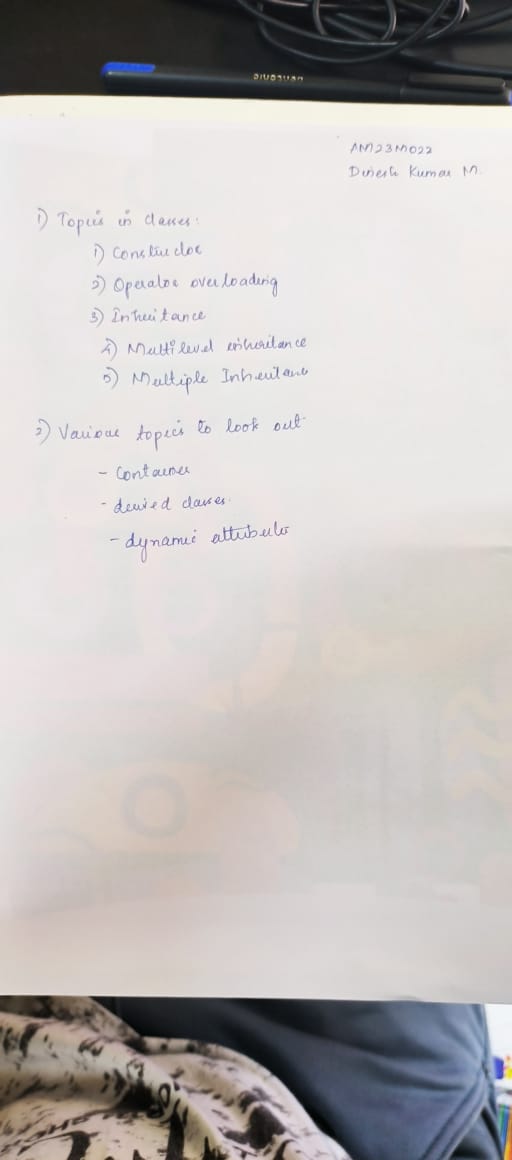 AM23M022
Dinesh Kumar M.
1) Topics in classes:
1) Constructor
2) Operator overloading
3) Inheritance
4) Multilevel inheritance
5) Multiple Inheritance
2) Various topics to look out
- Container
- derived classes.
- dynamic attributes